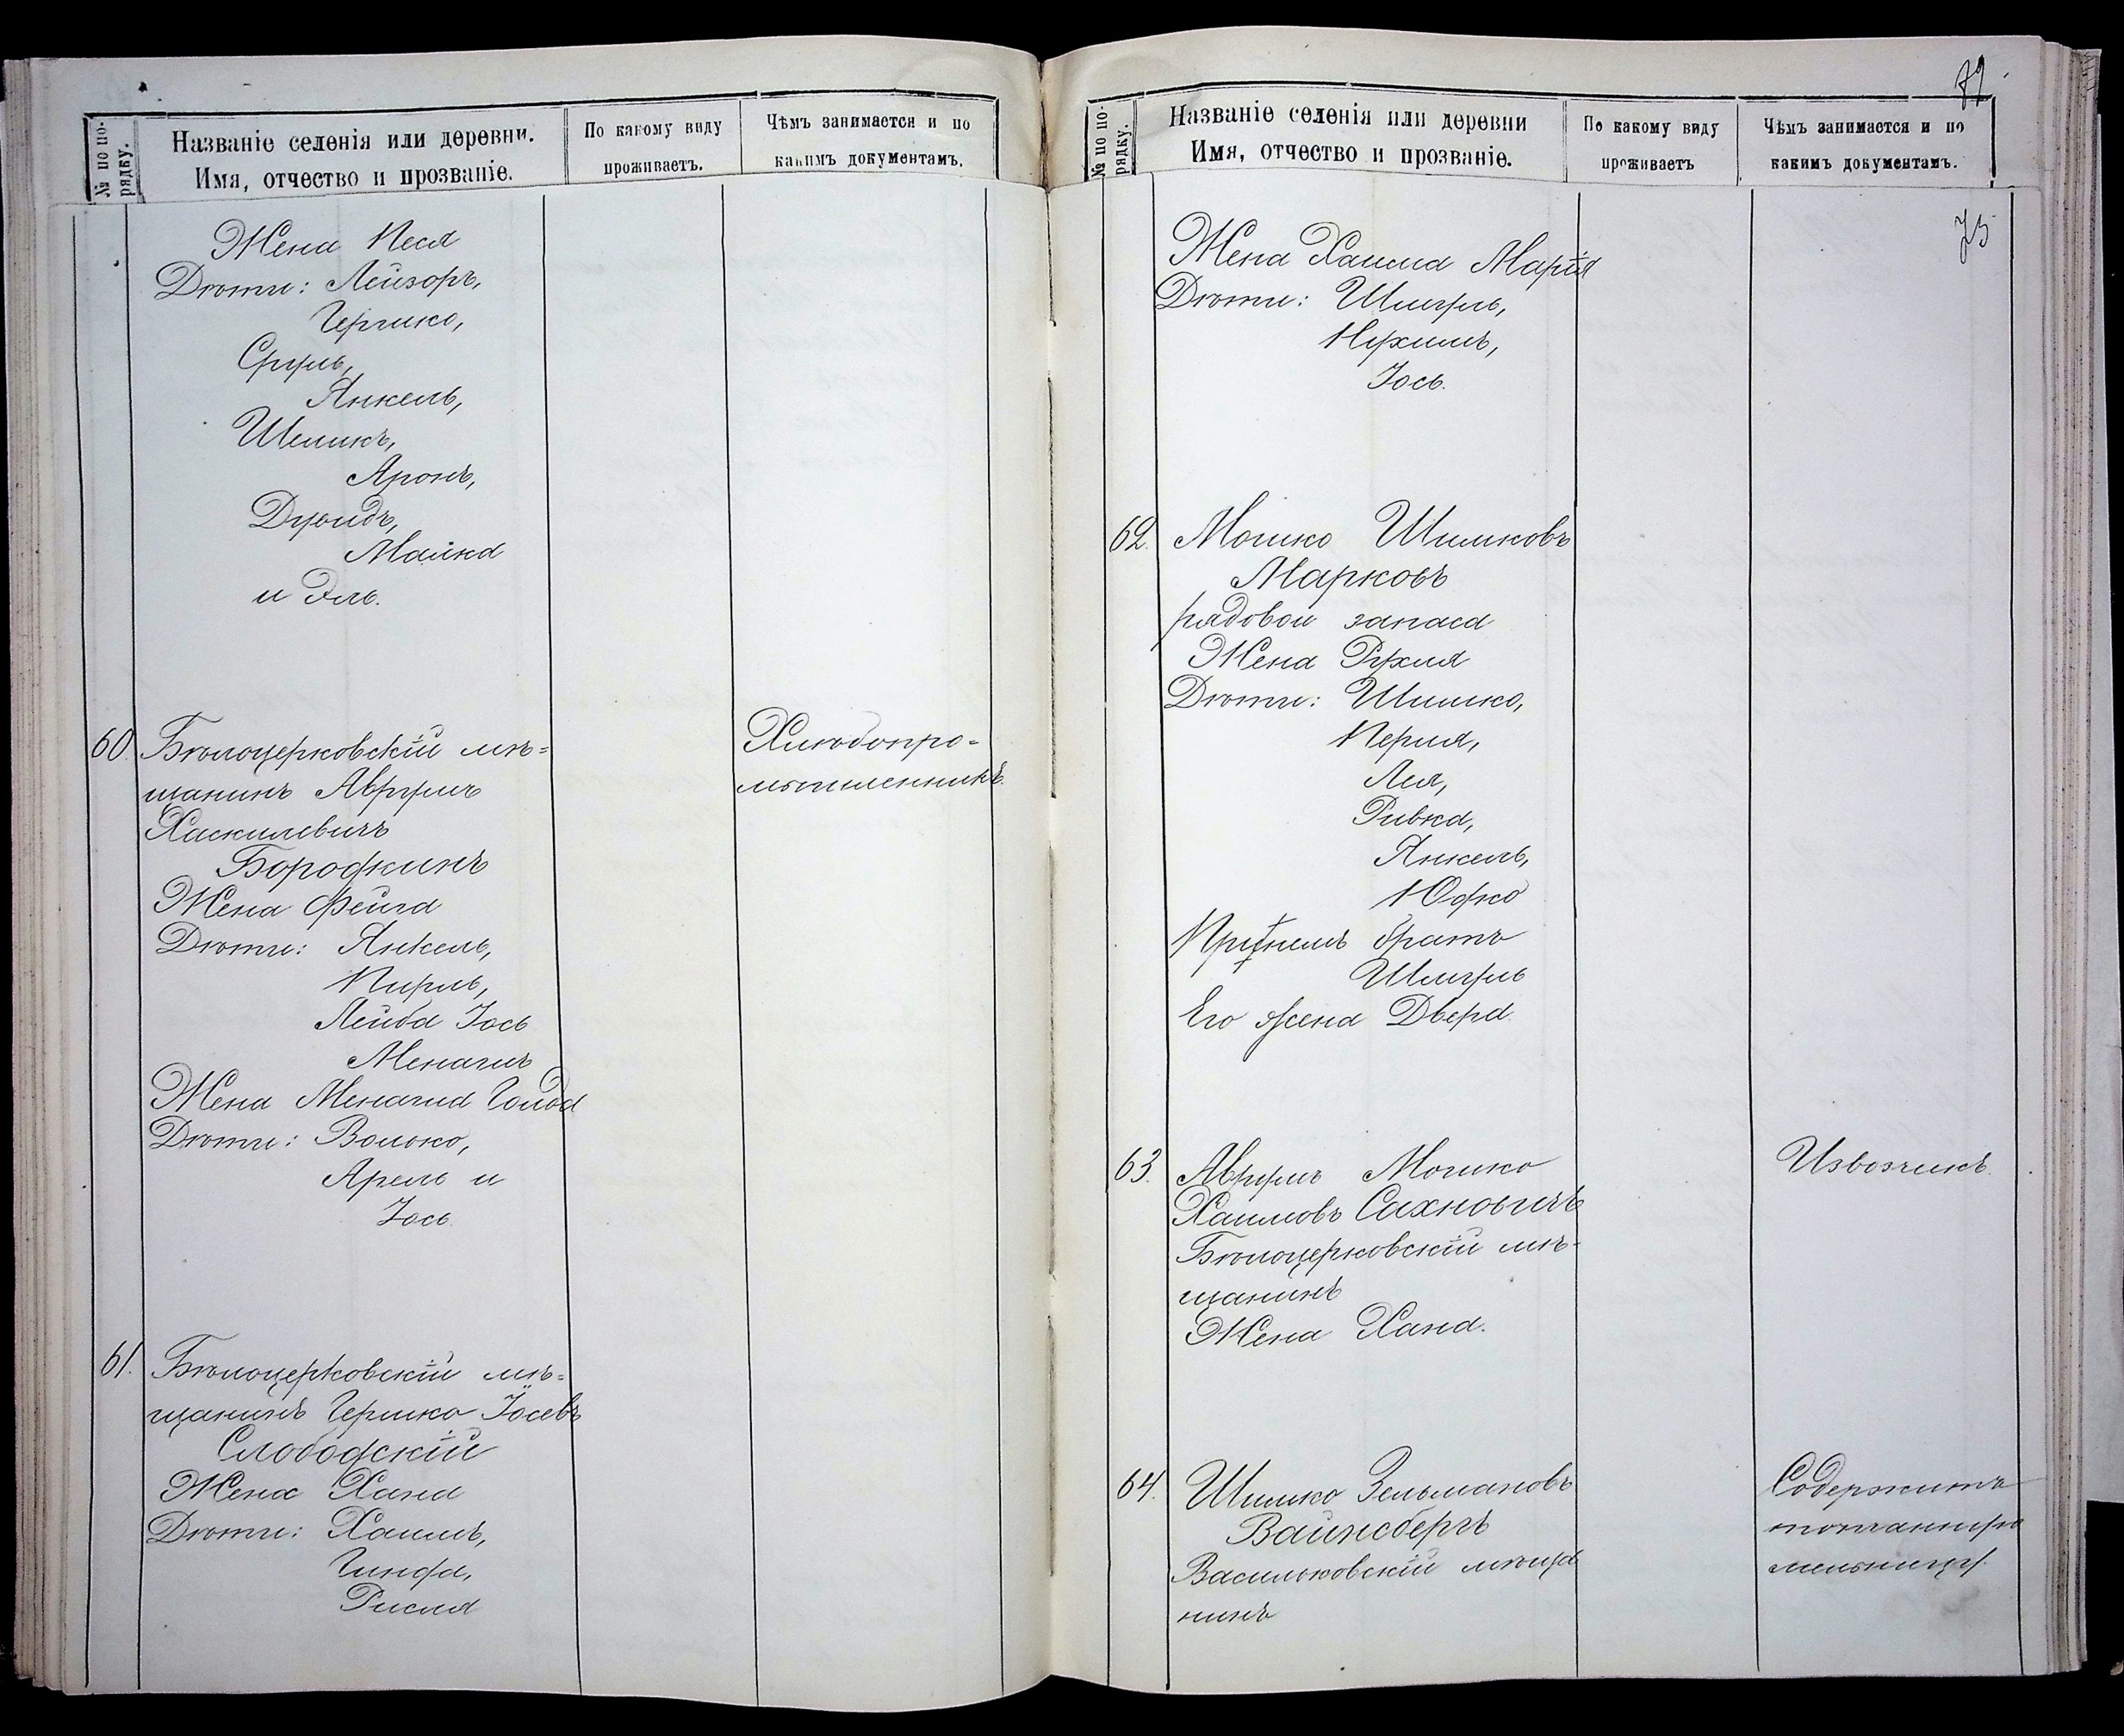 № по по-
рядку.
Названіе селенія или деревни.
Имя, отчество и прозваніе.
По какому виду
проживаетъ.
Чѣмъ занимается и по
какимъ документамъ.
Жена Песя
Дѣти: Лейзоръ,
Гершко,
Сруль,
Янкель,
Шлемикъ,
Аронъ,
Дувидъ,
Малка
и Эль.
60. Бѣлоцерковскій мѣ=
щанинъ Аврумъ
Хаскилевичъ
Бородкинъ
Жена Фейга
Дѣти: Янкель,
Пирль,
Лейба Іось
Менашъ
Жена Менаша Голда
Дѣти: Волько,
Арель и
Іось.
Хлѣбопро-
мышленникъ.
61. Бѣлоцерковскій мѣ=
щанинъ Гершко Іосевъ
Слободскій
Жена Хана
Дѣти: Хаимъ,
Гинда,
Рисля
72.
№ по по-
рядку.
Названіе селенія или деревни
Имя, отчество и прозваніе.
По какому виду
проживаетъ
Чѣмъ занимается и по
какимъ документамъ.
75
Жена Хаима Марія
Дѣти: Шмуль,
Нухимъ,
Іось.
62. Мошко Шимковъ
Марковъ
рядовой запаса
Жена Рухля
Дѣти: Шимко,
Перля,
Лея,
Ривка,
Янкель,
Юдко
При немъ братъ
Шмуль
Его жена Двера
63. Аврумъ Мошко
Хаимовъ Сахновичъ
Бѣлоцерковскій мѣ-
щанинъ
Жена Хана.
Извозчикъ.
64. Шимко Зельмановъ
Вайнсбергъ
Васильковскій мѣща
нинъ
Содержитъ
топчанную
мельницу.